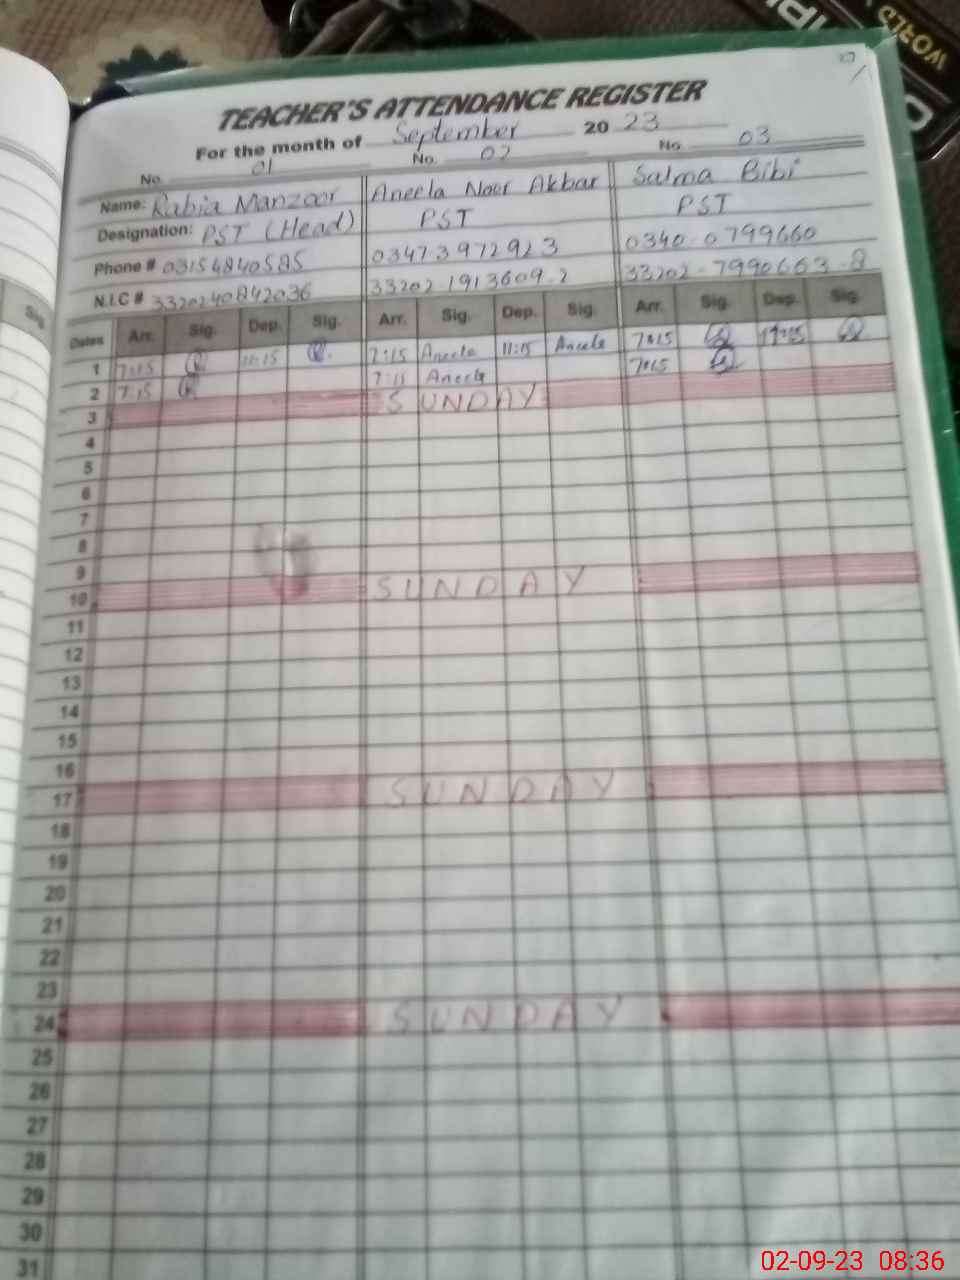 WORLD
TEACHER'S ATTENDANCE REGISTER
For the month of September 2023
No. 01 No. 02 No. 03
Name: Rabia Manzoor Aneela Noor Akbar Salma Bibi
Designation: PST (Head) PST PST
Phone # 03154840585 03473972923 0340-0799660
N.I.C # 3320240842036 33202 1913609-2 33202-7990663-8
Dates Arr. Sig. Dep. Sig. Arr. Sig. Dep. Sig. Arr. Sig. Dep. Sig.
1 7:15 11:15 7:15 Aneela 11:15 Aneela 7:15
2 7:15 7:15 Aneela 7:15
3 SUNDAY
4
5
6
7
8
9
10 SUNDAY
11
12
13
14
15
16
17 SUNDAY
18
19
20
21
22
23
24 SUNDAY
25
26
27
28
29
30
31
02-09-23 08:36